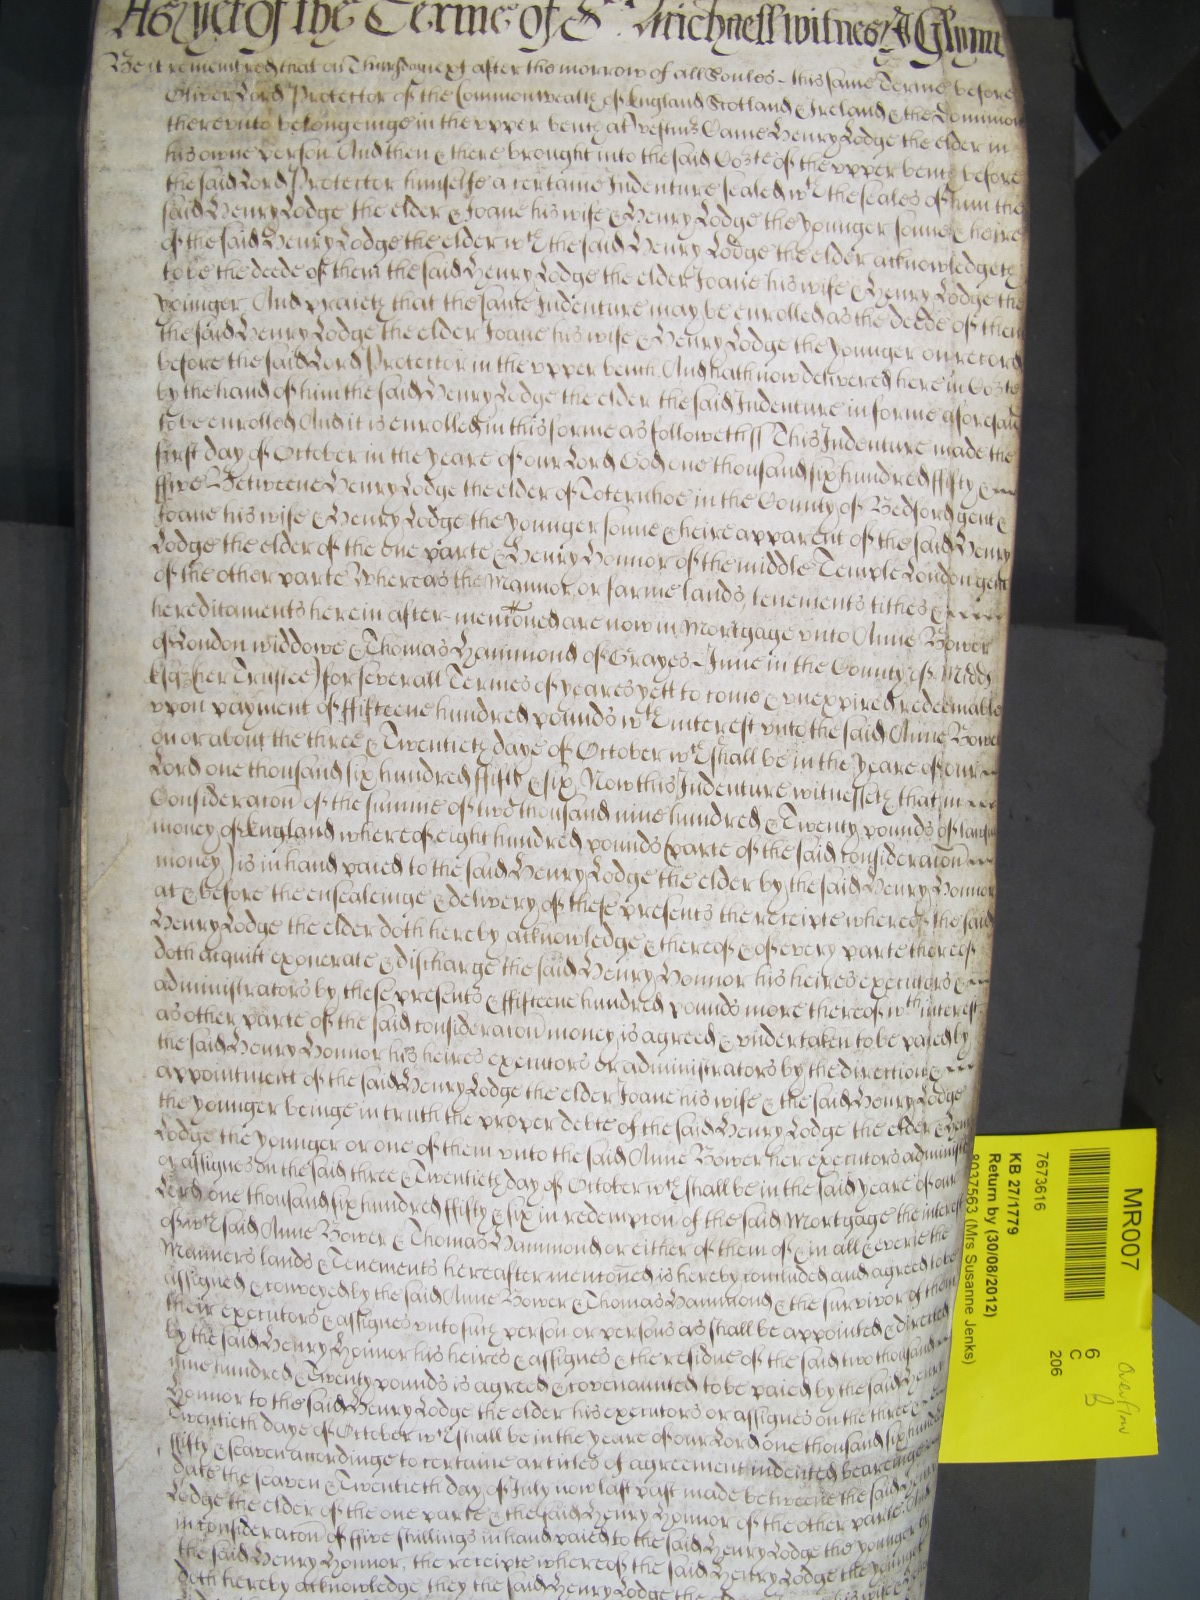 As yet of the Terme of St. Michaell witnes Glynn
Be it remembred that on Thursday next after the morrow of all Soules this same Terme before
Oliver Lord Protector of the Commonwealth of England Scotland & Ireland & the Dominions
therevnto belongeinge in the vpper bench at Westmr Came Henry Lodge the elder in
his owne person And then & there brought into the said Co3te of the vpper bench before
the said Lord Protector himselfe a certaine Indenture sealed wth the seales of him the
said Henry Lodge the elder & Joane his wife & Henry Lodge the younger sonne & heire
of the said Henry Lodge the elder wch the said Henry Lodge the elder acknowledgeth
to be the deede of them the said Henry Lodge the elder Joane his wife & Henry Lodge the
younger And praieth that the same Indenture may be enrolled as the deede of them
the said Henry Lodge the elder Joane his wife & Henry Lodge the younger on record
before the said Lord Protector in the vpper bench And hath now delivered here in Co3te
by the hand of him the said Henry Lodge the elder the said Indenture in forme aforesaid
to be enrolled And it is enrolled in this forme as followeth ss This Indenture made the
first day of October in the yeare of our Lord God one thousand six hundred fifty &
ffive Betweene Henry Lodge the elder of Toternhoe in the County of Bedford gent &
Joane his wife & Henry Lodge the younger sonne & heire apparent of the said Henry
Lodge the elder of the one parte & Henry Honnor of the middle Temple London gent
of the other parte Whereas the Mannor or farme lands tenements tithes &
hereditaments herein after mentoned are now in Mortgage vnto Anne Bower
of London widdowe & Thomas Hammond of Grayes Inne in the County of Midd
Esqr (her Trustee) for severall Termes of yeares yett to come & vnexpired redeemable
vpon payment of ffifteene hundred pounds wth interest vnto the said Anne Bower
on or about the three & Twentieth daye of October wch shall be in the yeare of our
Lord one thousand six hundred ffiftie & six Now this Indenture witnesseth that in
Consideraton of the summe of two thousand nine hundred & Twenty pounds of lawfull
money of England whereof eight hundred pounds (parte of the said consideraton
money) is in hand paied to the said Henry Lodge the elder by the said Henry Honnor
at & before the ensealeinge & delivery of these presents the receipte whereof the said
Henry Lodge the elder doth hereby acknowledge & thereof & of every parte thereof
doth acquitt exonerate & discharge the said Henry Honnor his heires executors &
administrators by these presents & ffifteene hundred pounds more thereof wth interest
as other parte of the said consideraton money is agreed & vndertaken to be paied by
the said Henry Honnor his heires executors or administrators by the direction &
appointment of the said Henry Lodge the elder Joane his wife & the said Henry Lodge
the younger beinge in truth the proper debte of the said Henry Lodge the elder & Henry
Lodge the younger or one of them vnto the said Anne Bower her executors administ
or assignes on the said three & Twentieth day of October wch shall be in the said yeare of our
Lord one thousand six hundred ffifty & six in redempton of the said Mortgage the interest
of wch said Anne Bower & Thomas Hammond or either of them of & in all & everie the
Mannors lands & Tenements hereafter mentoned is hereby concluded and agreed to be
assigned & conveyed by the said Anne Bower & Thomas Hammond & the survivor of them
their executors & assignes vnto such person or persons as shall be appointed & directed
by the said Henry Honnor his heires & assignes & the residue of the said two thousand
nine hundred & Twenty pounds is agreed & covenanted to be paied by the said Henry
Honnor to the said Henry Lodge the elder his executors or assignes on the three &
Twentieth daye of October wch shall be in the yeare of our Lord one thousand six hundred
ffifty & seaven accordinge to certaine articles of agreement indented beareinge
date the seaven & Twentieth day of July now last past made betweene the said Henry
Lodge the elder of the one parte & the said Henry Honnor of the other parte And
in consideraton of ffive shillings in hand paied to the said Henry Lodge the younger by
the said Henry Honnor, the receipte whereof the said Henry Lodge the younger
doth hereby acknowledge they the said Henry Lodge the
MR007
7673616
KB 27/1779
Return by (30/08/2012)
8037563 (Mrs Susanne Jenks)
6
C
206
Overflow